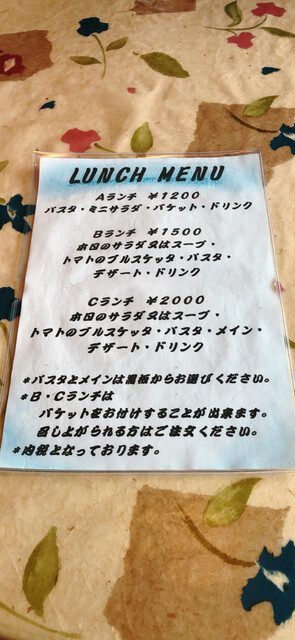 LUNCH MENU
Aランチ ¥1200
パスタ・ミニサラダ・バケット・ドリンク
Bランチ ¥1500
本日のサラダ又はスープ・
トマトのブルスケッタ・パスタ・
デザート・ドリンク
Cランチ ¥2000
本日のサラダ又はスープ・
トマトのブルスケッタ・パスタ・メイン・
デザート・ドリンク
*パスタとメインは黒板からお選びください。
*B・Cランチは
バケットをお付けすることが出来ます。
召し上がられる方はご注文ください。
*内税となっております。